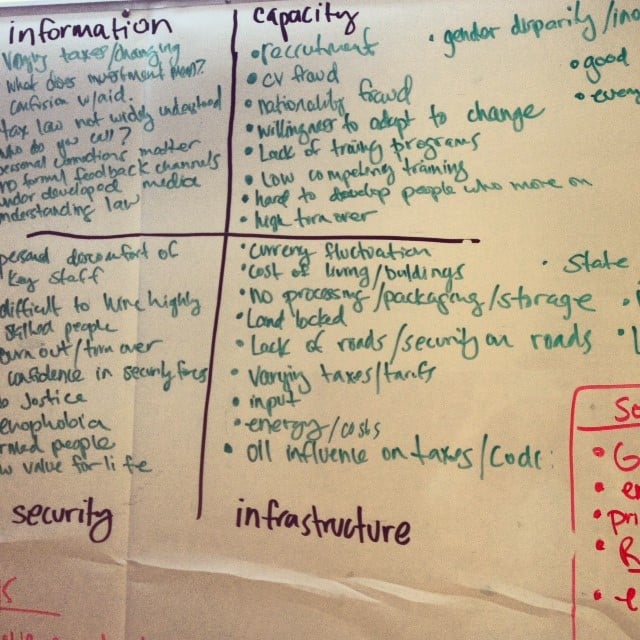 information
Varying taxes/changing
what does investment mean?
confusion w/aid.
tax law not widely understood
who do you call?
personal connections matter
no formal feedback channels
under developed media
understanding law
capacity
• recruitment
• CV fraud
• nationality fraud
• willingness to adapt to change
• Lack of training programs
• Low competency training
• hard to develop people who move on
• high turnover
• gender disparity/
• good
• every
personal discomfort of
key staff
difficult to hire highly
skilled people
burn out/turn over
confidence in security forces
Justice
xenophobia
armed people
low value for life
security
• currency fluctuation
• cost of living/buildings
• no processing/packaging/storage
• Land locked
• Lack of roads/security on roads
• Varying taxes/tarifs
• input
• energy/costs
• Oil influence on taxes/Code
infrastructure
• State
Se
• G
• en
• pri
• R
• e